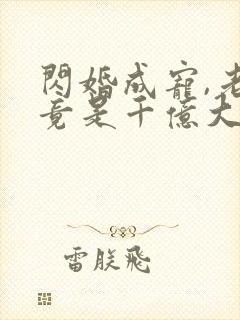 閃婚成寵,老
竟是千億大
雷朕飛